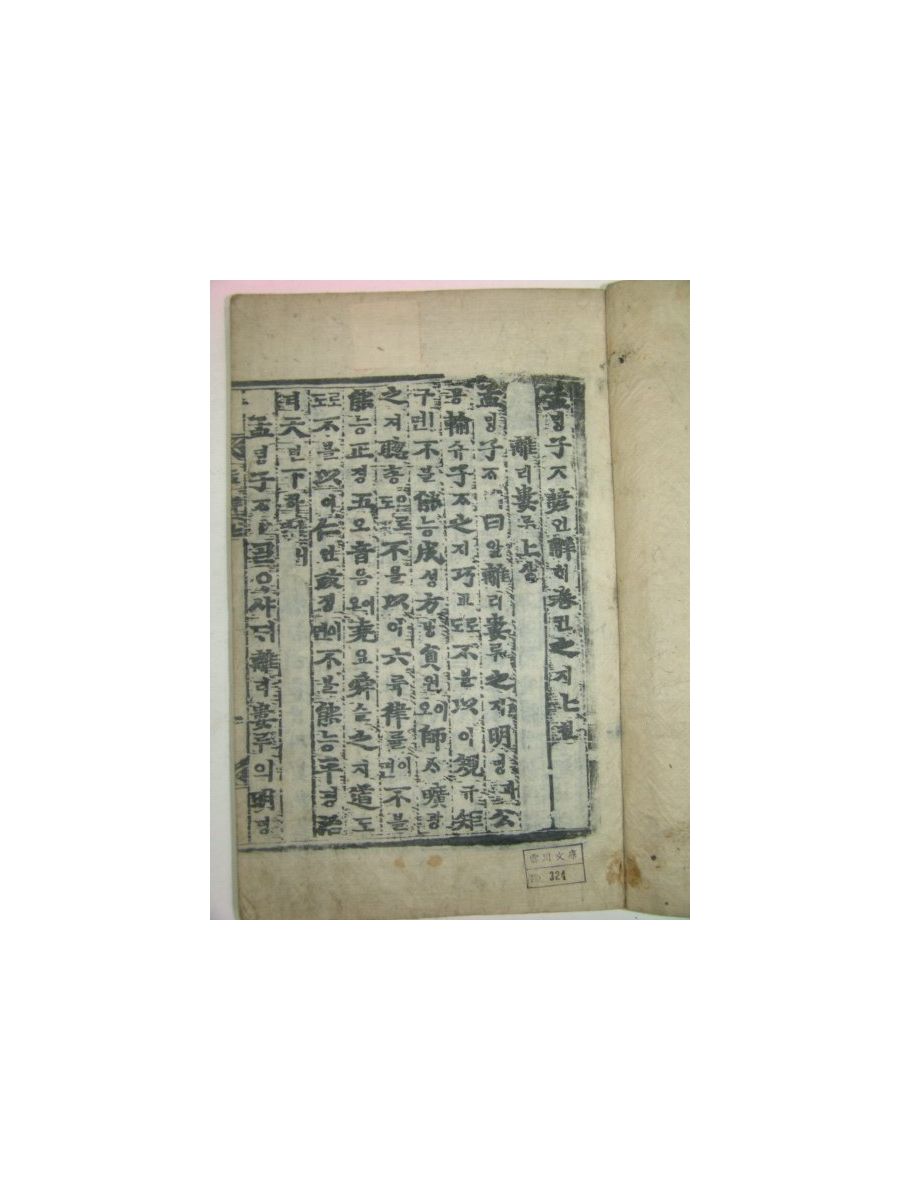 孟ᄆᆡᆼ子ᄌᆞ諺언解ᄒᆡ卷권之지七칠
離리婁루上샹
孟ᄆᆡᆼ子ᄌᆞㅣ曰왈離리婁루之지明명과公
공輸슈子ᄌᆞ之지巧교로도不블以이規규矩
구ㅣ면不블能능成셩方방員원이오師ᄉᆞ曠광
之지聰총으로도不블以이六륙律률이면不블
能능正졍五오音음이오堯요舜슌之지道도
로도不블以이仁인政졍이면不블能능平평治
티天텬下하
孟ᄆᆡᆼ子ᄌᆞㅣᄀᆞᆯᄋᆞ샤ᄃᆡ離리婁루의明명
川文庫
324